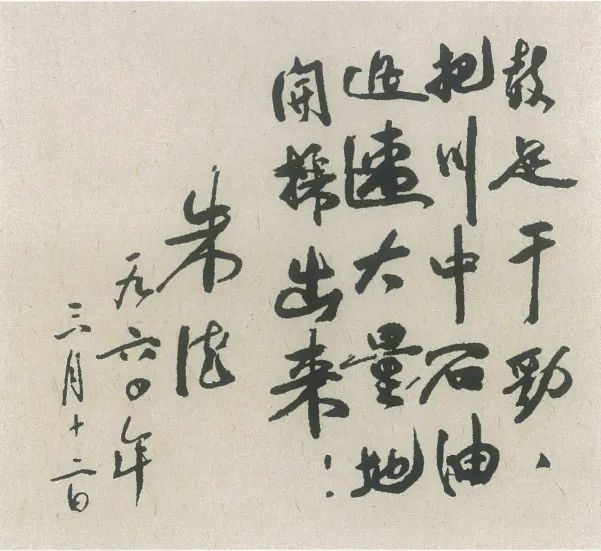 鼓足干勁、
把川中石油
迅速大量地
開採出来!
朱德
一九六〇年
三月十二日